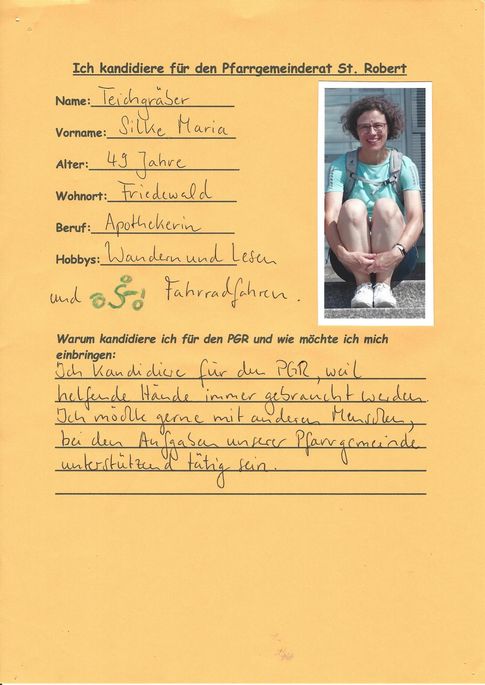 Ich kandidiere für den Pfarrgemeinderat St. Robert
Name: Teichgräber
Vorname: Silke Maria
Alter: 49 Jahre
Wohnort: Friedewald
Beruf: Apothekerin
Hobbys: Wandern und Lesen
und Fahrradfahren.
Warum kandidiere ich für den PGR und wie möchte ich mich
einbringen:
Ich kandidiere für den PGR, weil
helfende Hände immer gebraucht werden.
Ich möchte gerne mit anderen Menschen,
bei den Aufgaben unserer Pfarrgemeinde
unterstützend tätig sein.